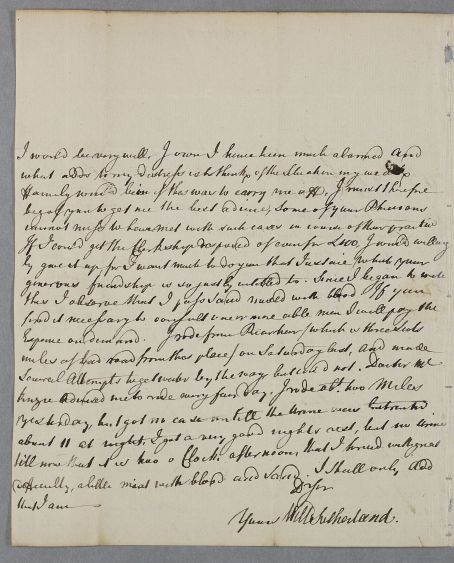 I would be very well. I own I have been much alarmed and
what adds to my distress is to think of the situation my wee
Family would be in if this was to carry me off, I must therefore
beg of you to get me the best advice, some of your Phisicians
cannot miss to have met with such cases in course of their practice
If I could get the Clerkship disposed of even for £400, I would willing
ly give it up for I want much to do you that Justice which your
generous friendship is so justly entitled to. Since I began to write
this I observe that I pass Sand mixed with blood If you
find it necessary to consult one or more able men I will pay the
Expence on demand. I rode from Riarchar (which is three
miles of bad road from this place) on Saturday last, and made
several Attempts to get water by the way but could not. Doctor Mc
kenzie advised me to ride every fair day, I rode abt. two Miles
yesterday, but got no ease until the urine was
about 11 at night, I got a very good nights rest, but no urine
till now that it is two o Clock afternoon, that I pissed with great
difficulty, a little mixt with blood and sand. I shall only add
that I am
D Sir
Yours Will Sutherland.